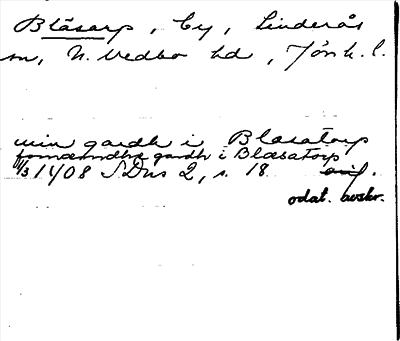 Blåsarp, by, Linderås
sn, N. Vedbo hd, Jönk. l.
min gardh i Blasatorp
fornæmdha gardh i Blæsatorp
1/3 1408 SDns 2, s. 18 orig.
odat. avskr.